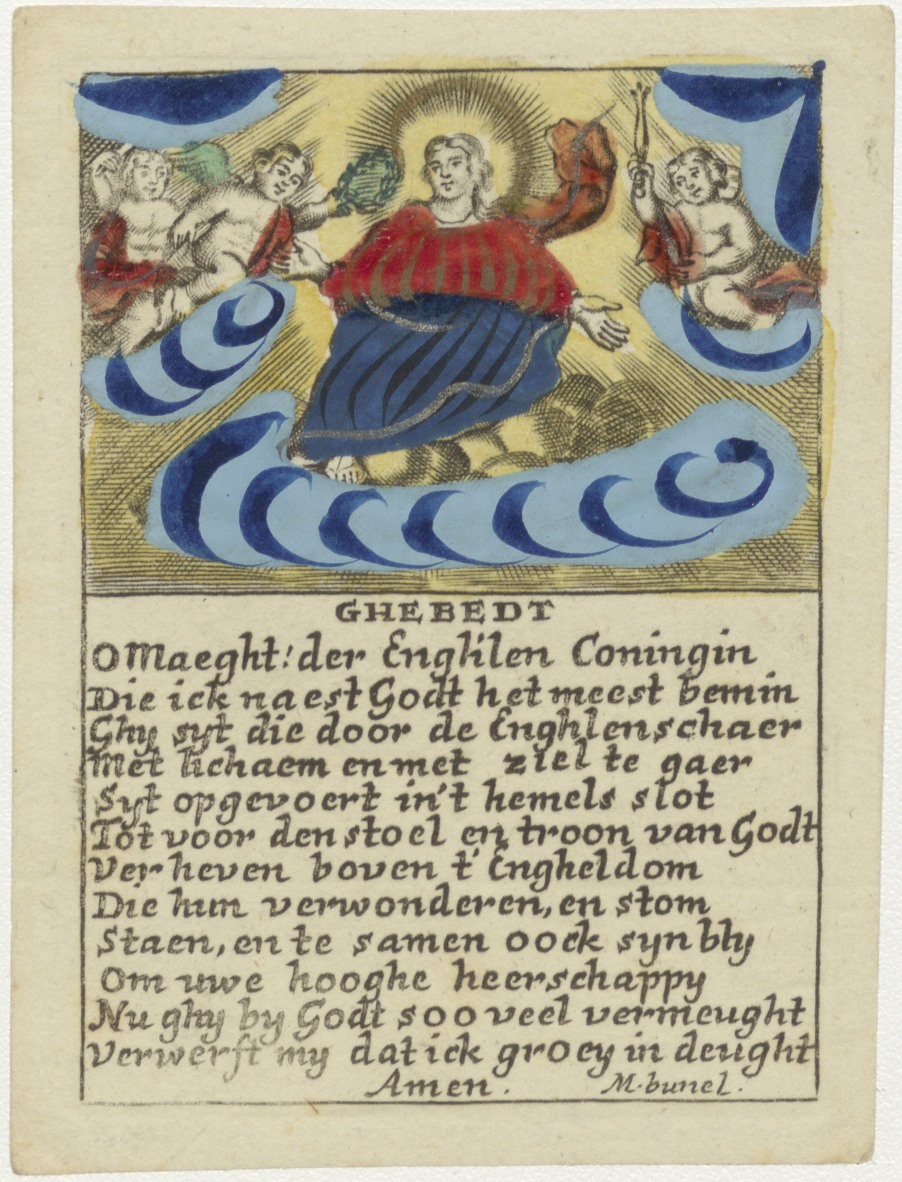 GHEBEDT
O Maeght! der Englilen Coningin
Die ick naest Godt het meest bemin
Ghy syt die door de Enghlenschaer
Met lichaem en met ziel te gaer
Syt opgevoert in't hemels slot
Tot voor den stoel en troon van Godt
Verheven boven t' Engheldom
Die hun verwonderen, en stom
Staen, en te samen oock syn bly
Om uwe hooghe heerschappy
Nu ghy by Godt soo veel vermeught
Verwerft my dat ick groey in deught
Amen. M.bunel.